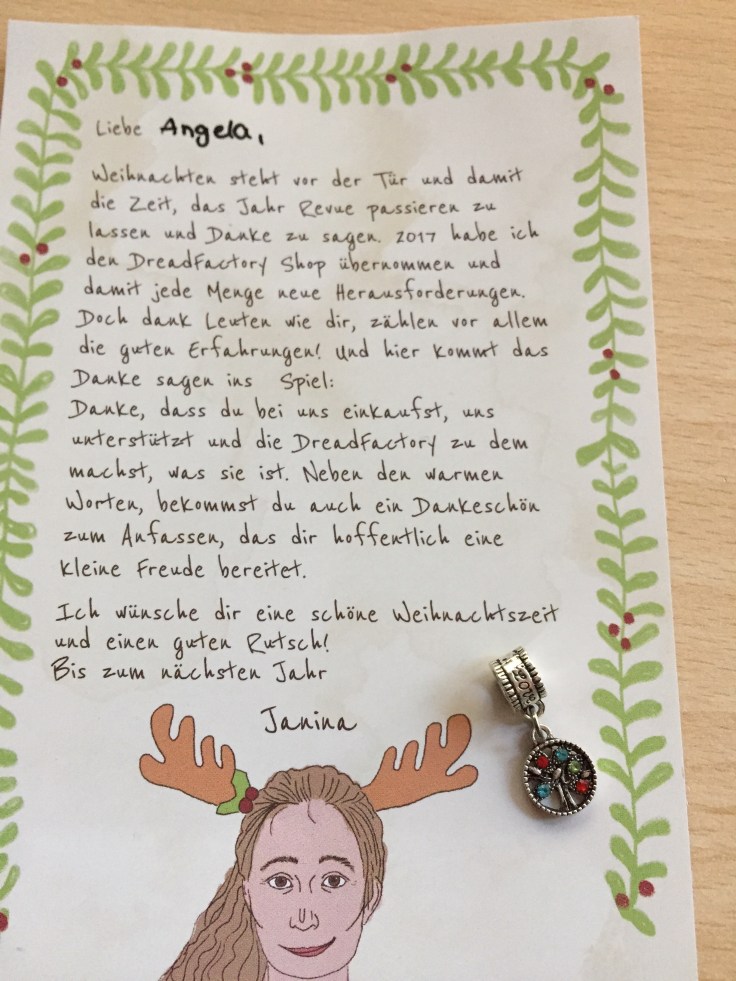 Liebe Angela,
Weihnachten steht vor der Tür und damit
die Zeit, das Jahr Revue passieren zu
lassen und Danke zu sagen. 2017 habe ich
den DreadFactory Shop übernommen und
damit jede Menge neue Herausforderungen.
Doch dank Leuten wie dir, zählen vor allem
die guten Erfahrungen! Und hier kommt das
Danke sagen ins Spiel:
Danke, dass du bei uns einkaufst, uns
unterstützt und die DreadFactory zu dem
machst, was sie ist. Neben den warmen
Worten, bekommst du auch ein Dankeschön
zum Anfassen, das dir hoffentlich eine
kleine Freude bereitet.
Ich wünsche dir eine schöne Weihnachtszeit
und einen guten Rutsch!
Bis zum nächsten Jahr
Janina